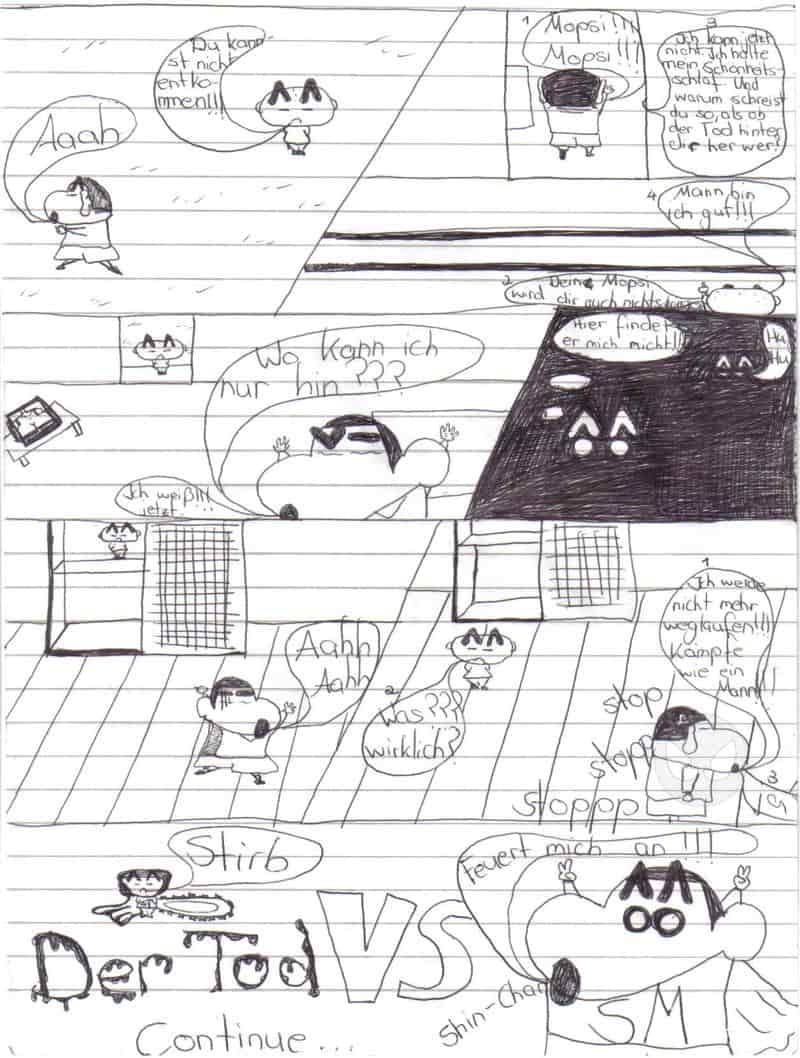 Du kann
st nicht
entko-
mmen!!!
Aaah
1
Mopsi!!!
Mopsi!!!
2
Deine Mopsi
wird dir auch nichts
3
Ich kann jetzt
nicht. Ich halte
mein Schönheits-
schlaf. Und
warum schreist
du so, als ob
der Tod hinter
dir her wer?
4
Mann bin
ich gut!!!
Wo kann ich
nur hin???
Ich weiß!!!
jetzt...
Hier findet
er mich nicht!!
Hu
Hu
Aahh
Aahh
1
Ich werde
nicht mehr
weglaufen!!!
Kämpfe
wie ein
Mann!!!
2
Was???
wirklich?
3
stop
stopp
stoppp
Stirb
Der Tod
VS
Feuert mich an!!!
Shin-Chan
SM
Continue...